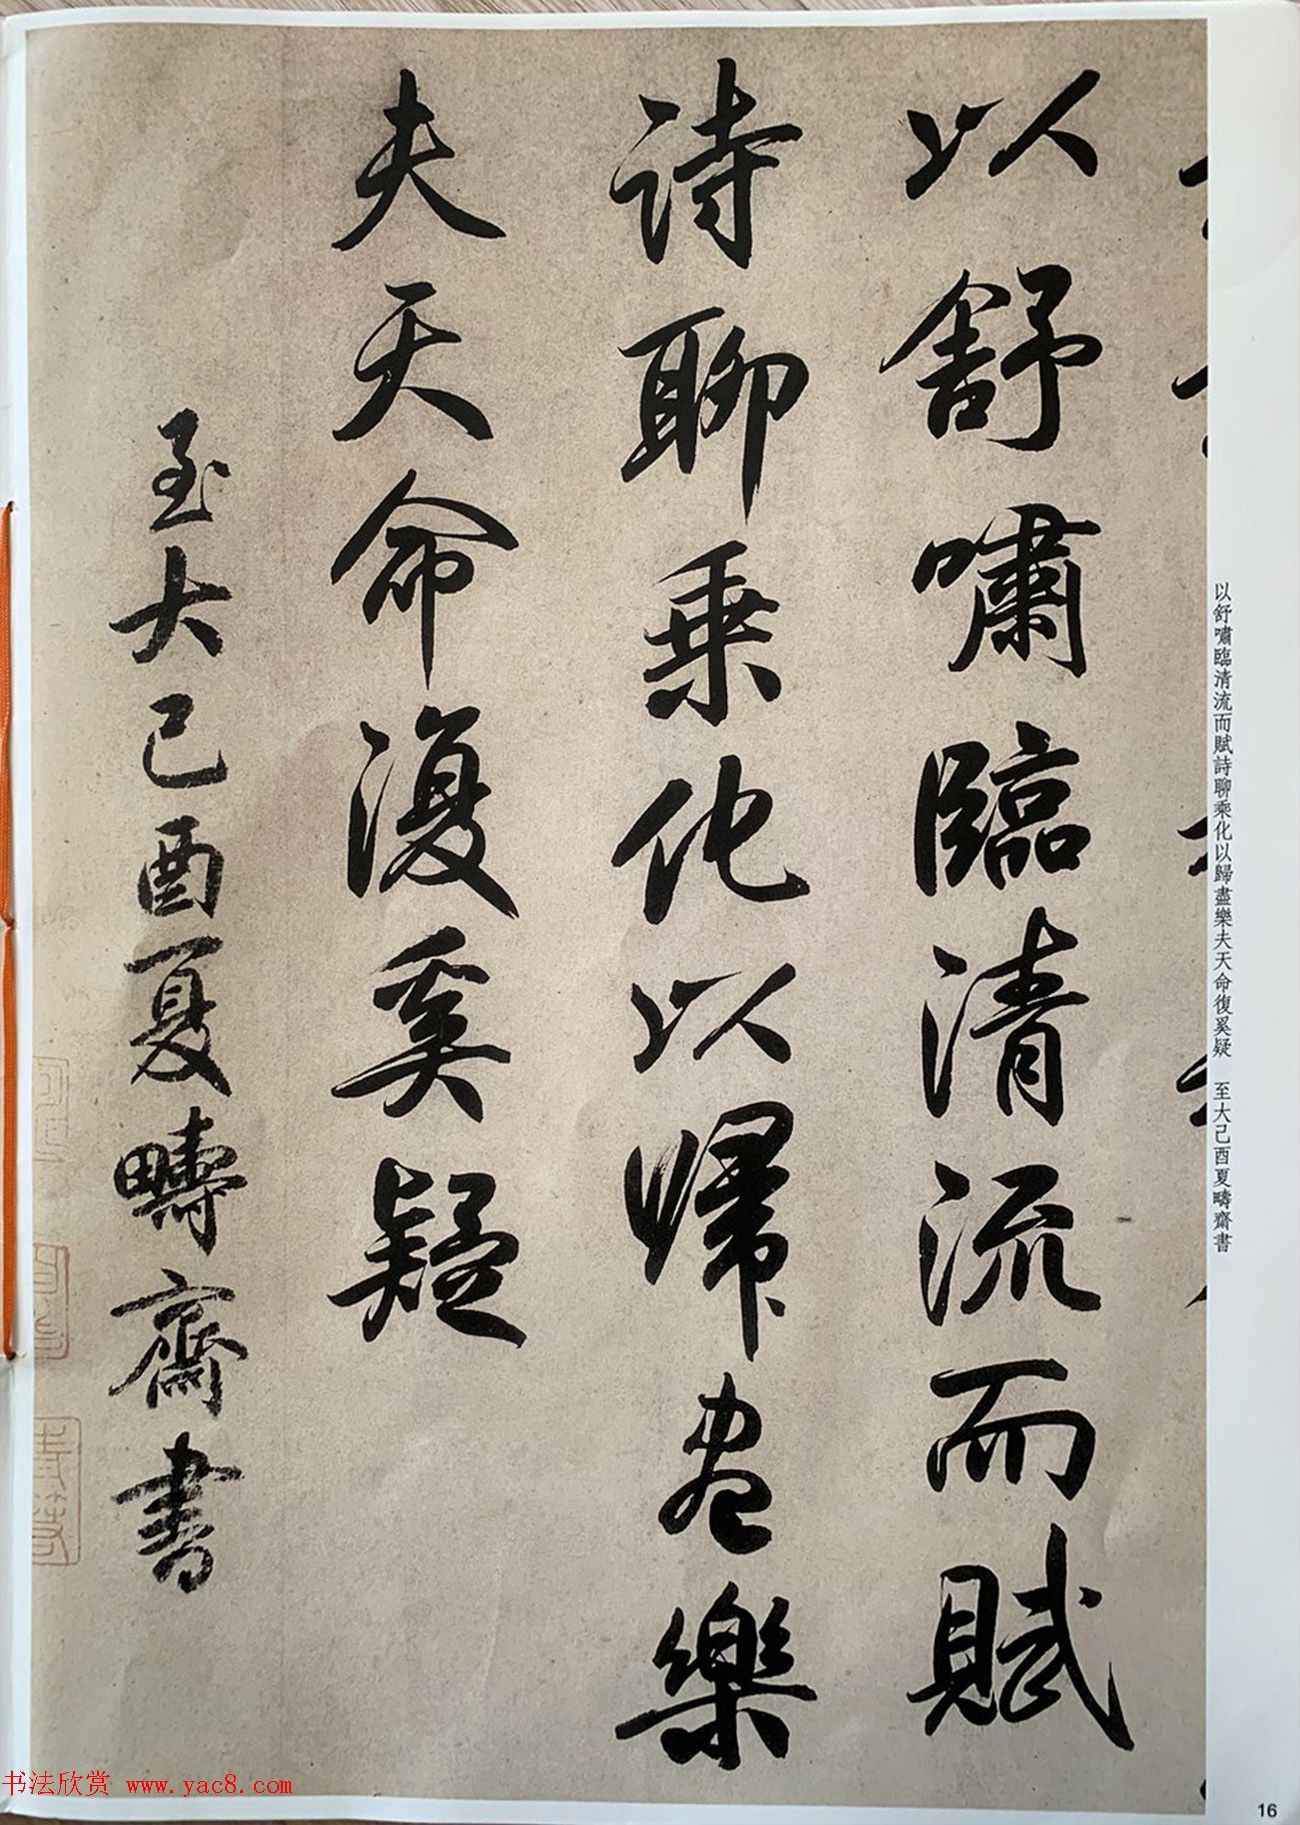 以舒嘯臨清流而賦詩聊乘化以歸盡樂夫天命復奚疑　至大己酉夏疇齋書
以舒嘯臨清流而賦
詩聊乘化以歸盡樂
夫天命復奚疑
至大己酉夏疇齋書
书法欣赏 www.yac8.com
16